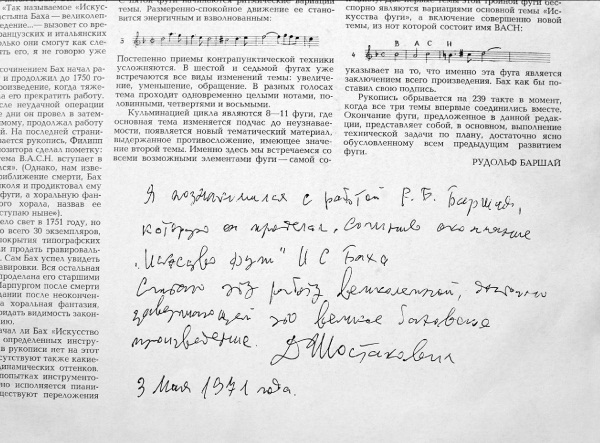 "Так называемое «Искус-
астьяна Баха — великолеп-
ведение...» — вызовет со вре-
французских и итальянских
олько они смогут как сле-
еть его, я не говорю уже
сочинением Бах начал ра-
и продолжил до 1750 го-
роизведение, когда тяже-
а его прекратить работу.
сле неудачной операции
е дни он провел в затем-
му, продолжал работу
й. На последней страни-
вается рукопись, Филипп
позитора сделал пометку:
тема B.A.C.H. вступает в
лся». (Однако, нам изве-
риближение смерти, Бах
николя и продиктовал ему
фуги, а хоральную фан-
ого хорала, назвав ее
ступаю ныне»).
ело свет в 1751 году, но
о всего 30 экземпляров,
покрытия типографских
и продать гравироваль-
. Сам Бах успел увидеть
авировки. Вся остальная
роделана его старшими
Марпургом после смерти
дании после неокончен-
а хоральная фантазия,
ридать видимость закон-
нию.
ачал ли Бах «Искусство
определенных инстру-
в рукописи нет на этот
сутствуют также какие-
динамических оттенков.
попытках инструменто-
но исполняется пиани-
ществуют переложения
С пятой фуги начинаются ритмические вариации
темы. Размеренно-спокойное движение ее стано-
вится энергичным и взволнованным:
Постепенно приемы контрапунктической техники
усложняются. В шестой и седьмой фугах уже
встречаются все виды изменений темы: увеличе-
ние, уменьшение, обращение. В разных голосах
тема проходит одновременно целыми нотами, по-
ловинными, четвертями и восьмыми.
Кульминацией цикла являются 8—11 фуги, где
основная тема изменяется подчас до неузнавае-
мости, появляется новый тематический материал,
выдержанное противосложение, имеющее значе-
ние второй темы. Именно здесь мы встречаемся со
всеми возможными элементами фуги — самой со-
первые темы этой тройной фуги бес-
спорно являются вариациями основной темы «Ис-
кусства фуги», а включение совершенно новой
темы, из нот которой состоит имя BACH:
B A C H
указывает на то, что именно эта фуга является
заключением всего произведения. Бах как бы по-
ставил свою подпись.
Рукопись обрывается на 239 такте в момент,
когда все три темы впервые соединились вместе.
Окончание фуги, предложенное в данной редак-
ции, представляет собой, в основном, выполнение
технической задачи по плану, достаточно ясно
обусловленному всем предыдущим развитием
фуги.
РУДОЛЬФ БАРШАЙ
Я познакомился с работой Р. Б. Баршая,
которую он проделал, сочинив окончание
„Искусство фуги" И С Баха
Считаю эту работу великолепной, достойно
завершающей это великое баховское
произведение. Д Шостакович
3 Мая 1971 года.